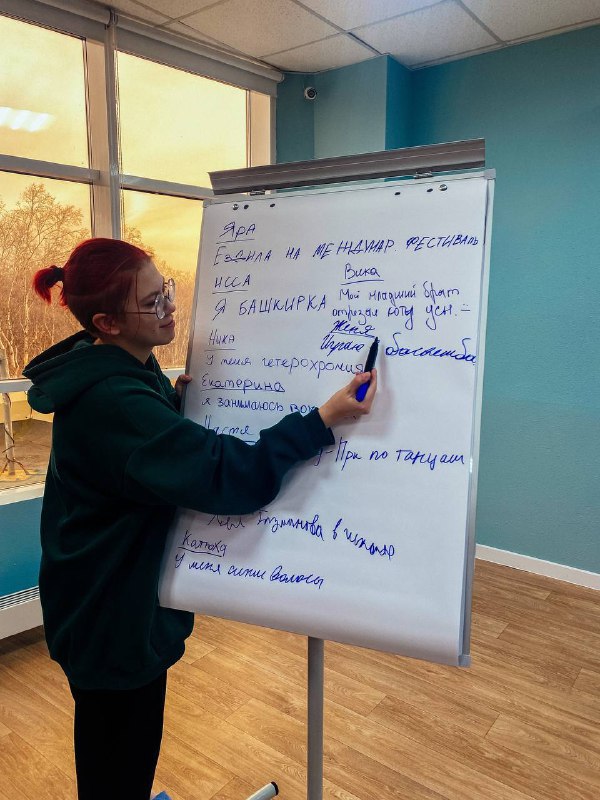 Яра
Ездила на междунар. фестиваль
Исса
Я БАШКИРКА
Вика
Мой младший брат
отрезал коту усы.
Женя
Играю баскетба
Ника
У меня гетерохромия
Екатерина
я занимаюсь вок
Настя
по танцам
Газманова в
У меня синие волосы